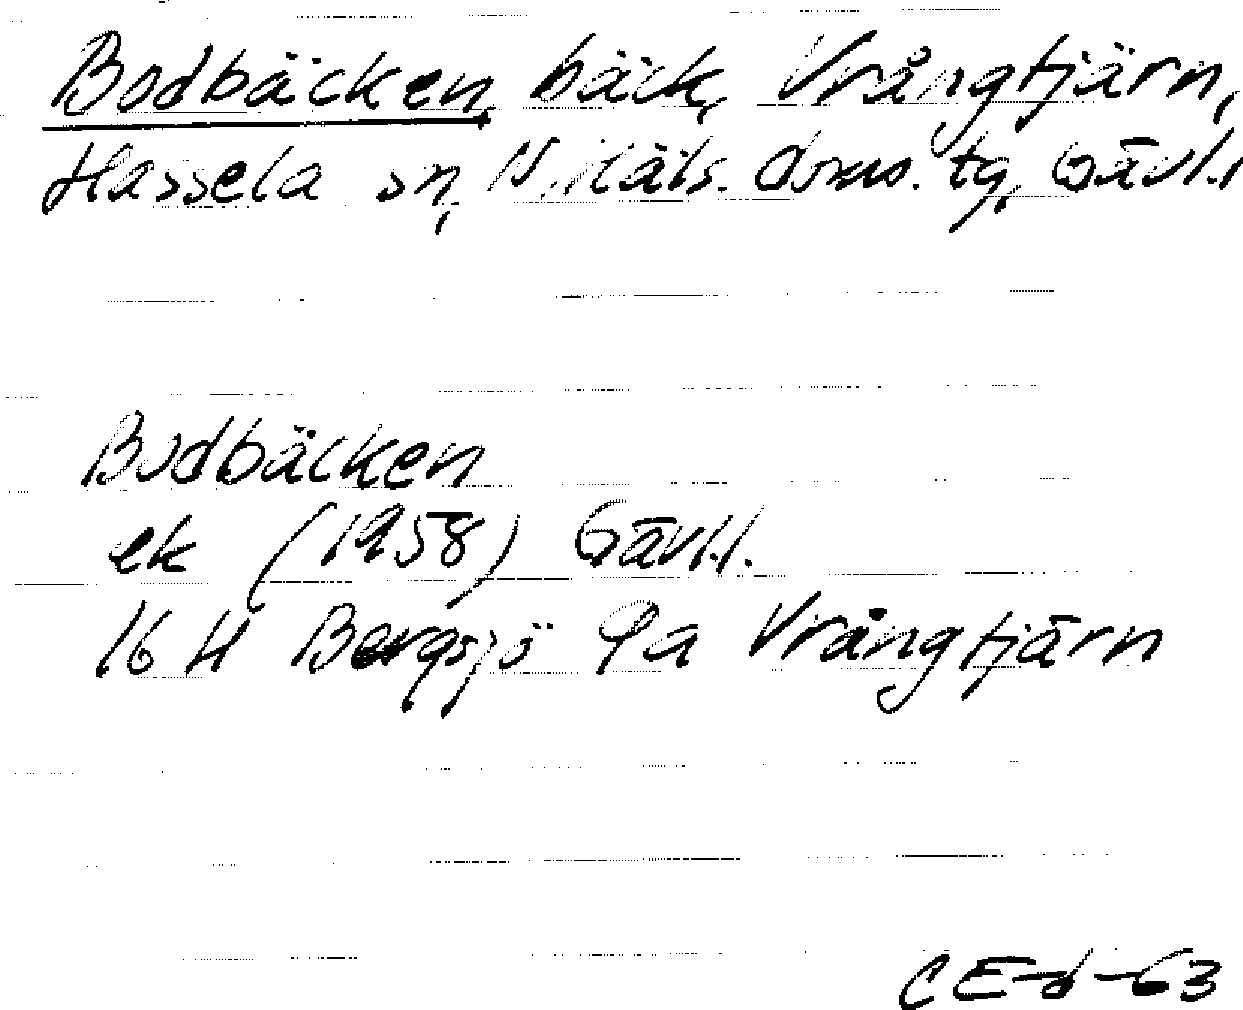 Bodbäcken, bäck, Vrångtjärn,
Hassela sn, N. Häls. doms. tg, Gävl.l
Bodbäcken
ek (1958) Gävl.l.
16 H Bergsjö 9a Vrångtjärn
CE-d-63